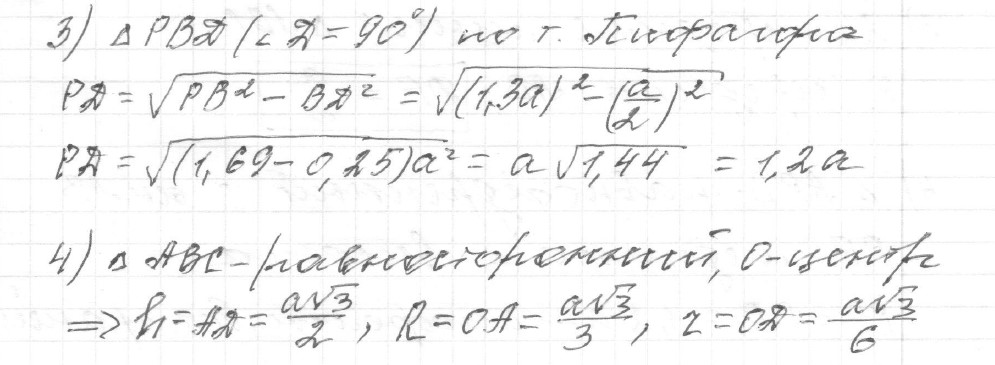 3) △ PBD (∠ D = 90°) по т. Пифагора
PD = √(PB² − BD²) = √((1,3a)² − (a/2)²)
PD = √((1,69 − 0,25)a²) = a √1,44 = 1,2a
4) △ ABC − равносторонний, O − центр
⇒ h = AD = a√3/2, R = OA = a√3/3, r = OD = a√3/6